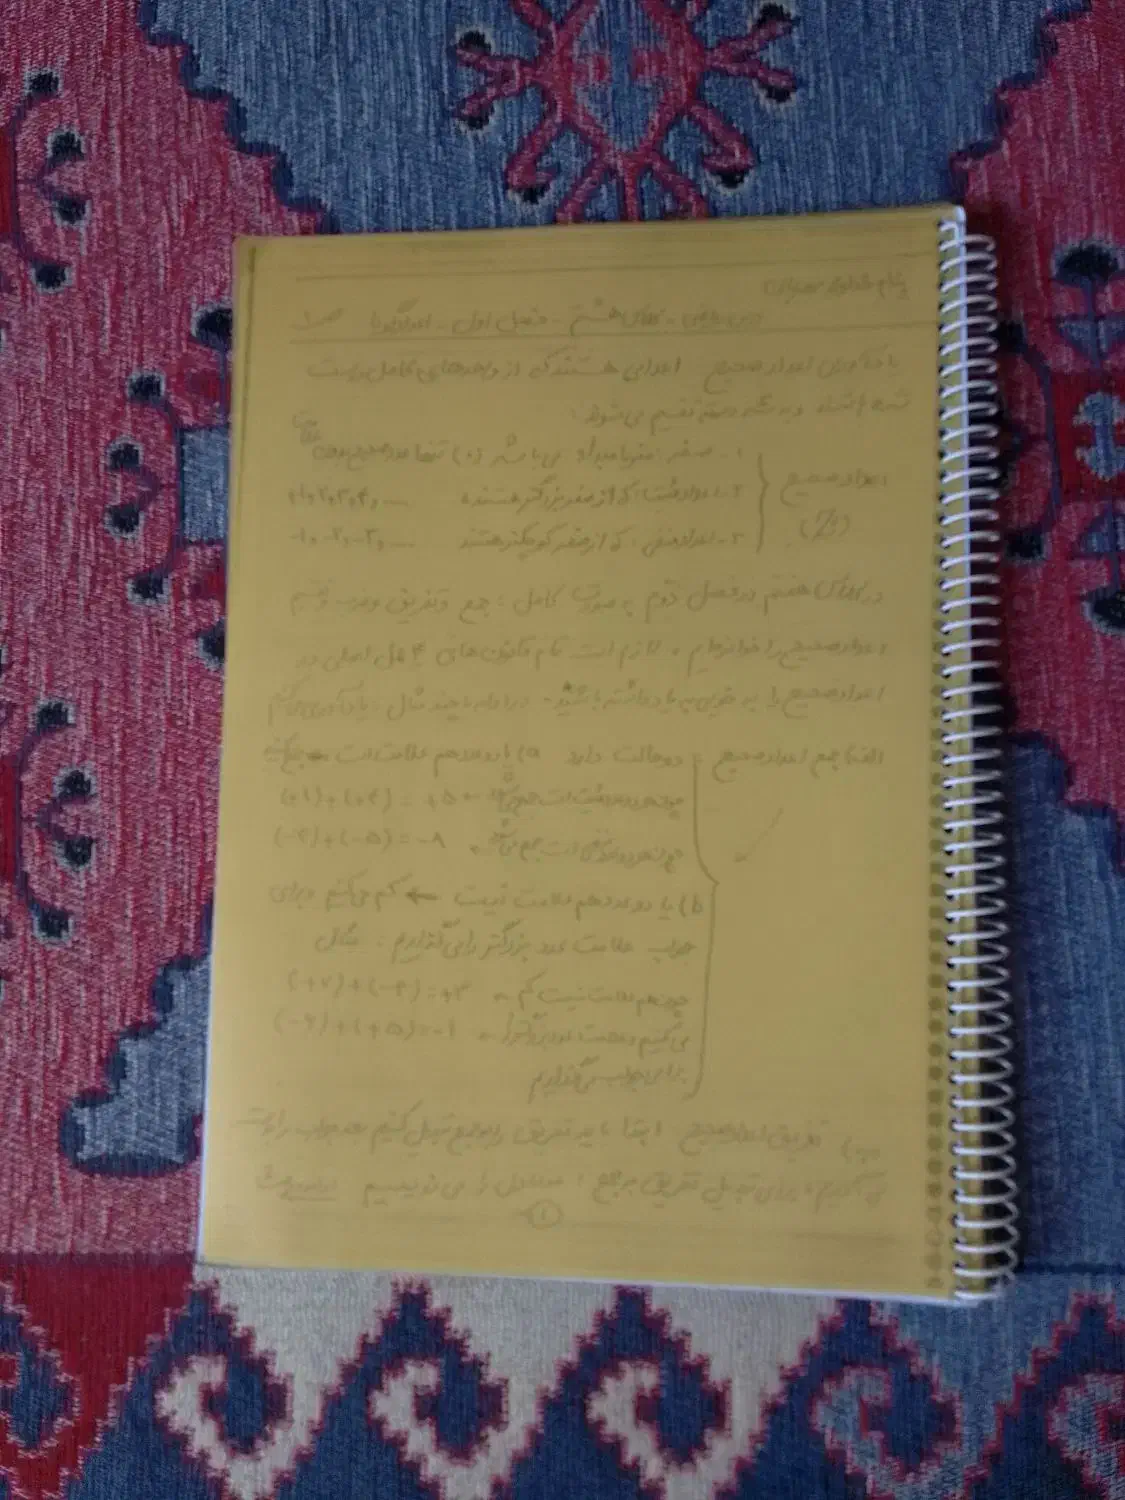 بنام خداوند سبحان
درس ریاضی - کلاس هشتم - فصل اول - اعداد گویا ص ۱
یادآوری اعداد صحیح اعدادی هستند که از واحدهای کامل درست
شده‌اند و به سه دسته تقسیم می‌شوند:
اعداد صحیح (Z)
۱- صفر: مبدا می‌باشد (۰) تنها عدد صحیح بدون علامت
۲- اعداد مثبت: که از صفر بزرگتر هستند ۱، ۲، ۳، ۴، ....
۳- اعداد منفی: که از صفر کوچکتر هستند -۱، -۲، -۳، ....
در کلاس هفتم در فصل دوم به صورت کامل: جمع و تفریق و ضرب و تقسیم
اعداد صحیح را خوانده‌ایم، لازم است تمام قانون‌های ۴ عمل اصلی در
اعداد صحیح را به خوبی به یاد داشته باشید - در ادامه با چند مثال یادآوری می‌کنیم
الف) جمع اعداد صحیح: دو حالت دارد a) یا دو عدد هم علامت است ← جمع می‌کنیم
چون هر دو عدد مثبت است جمع (+۱)+(+۴) = +۵
چون هر دو عدد منفی است جمع (-۳)+(-۵)=-۸
b) یا دو عدد هم علامت نیست ← کم می‌کنیم و برای
جواب علامت عدد بزرگتر را می‌گذاریم، مثال
چون هم علامت نیست کم (+۷)+(-۴)=+۳
می‌کنیم و علامت عدد بزرگتر را (-۶)+(+۵)=-۱
برای جواب می‌گذاریم
ب) تفریق اعداد صحیح ابتدا باید تفریق را به جمع تبدیل کنیم بعد جواب را بدست
می‌آوریم، برای تبدیل تفریق به جمع:
۱